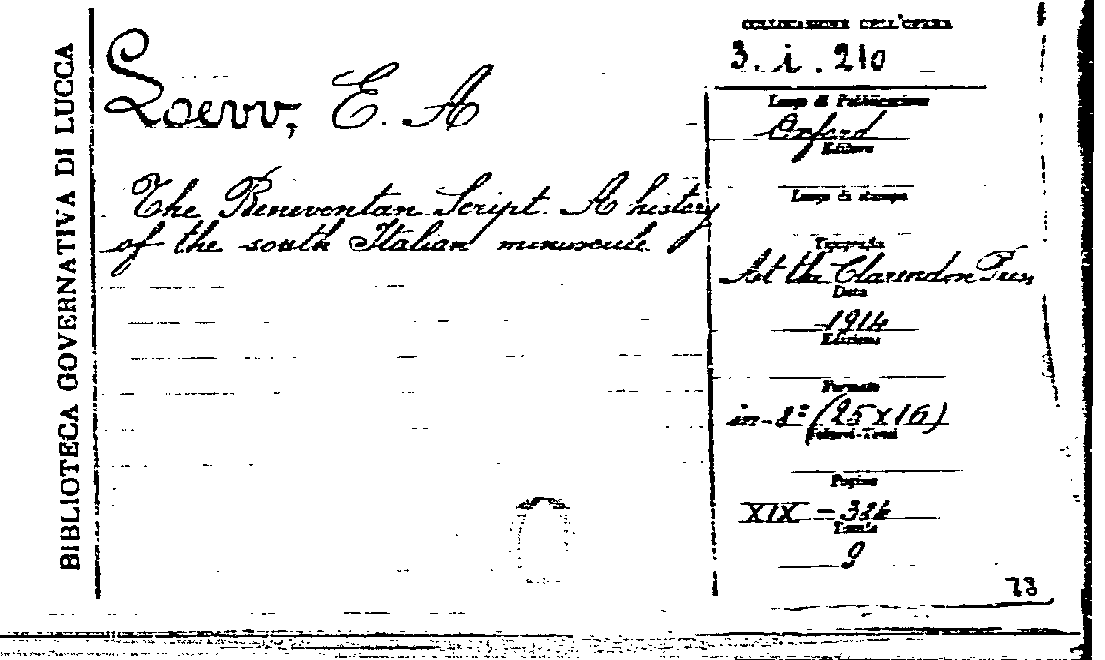 BIBLIOTECA GOVERNATIVA DI LUCCA
Loew, E. A
The Beneventan Script. A history
of the south Italian minuscule
COLLOCAZIONE DELL'OPERA
3. i. 210
Luogo di Pubblicazione
Oxford
Editore
Luogo di stampa
Tipografia
At the Clarendon Press
Data
1914
Edizione
Formato
in-8º (25x16)
Volumi-Tomi
Pagine
XIX - 384
Tavole
9